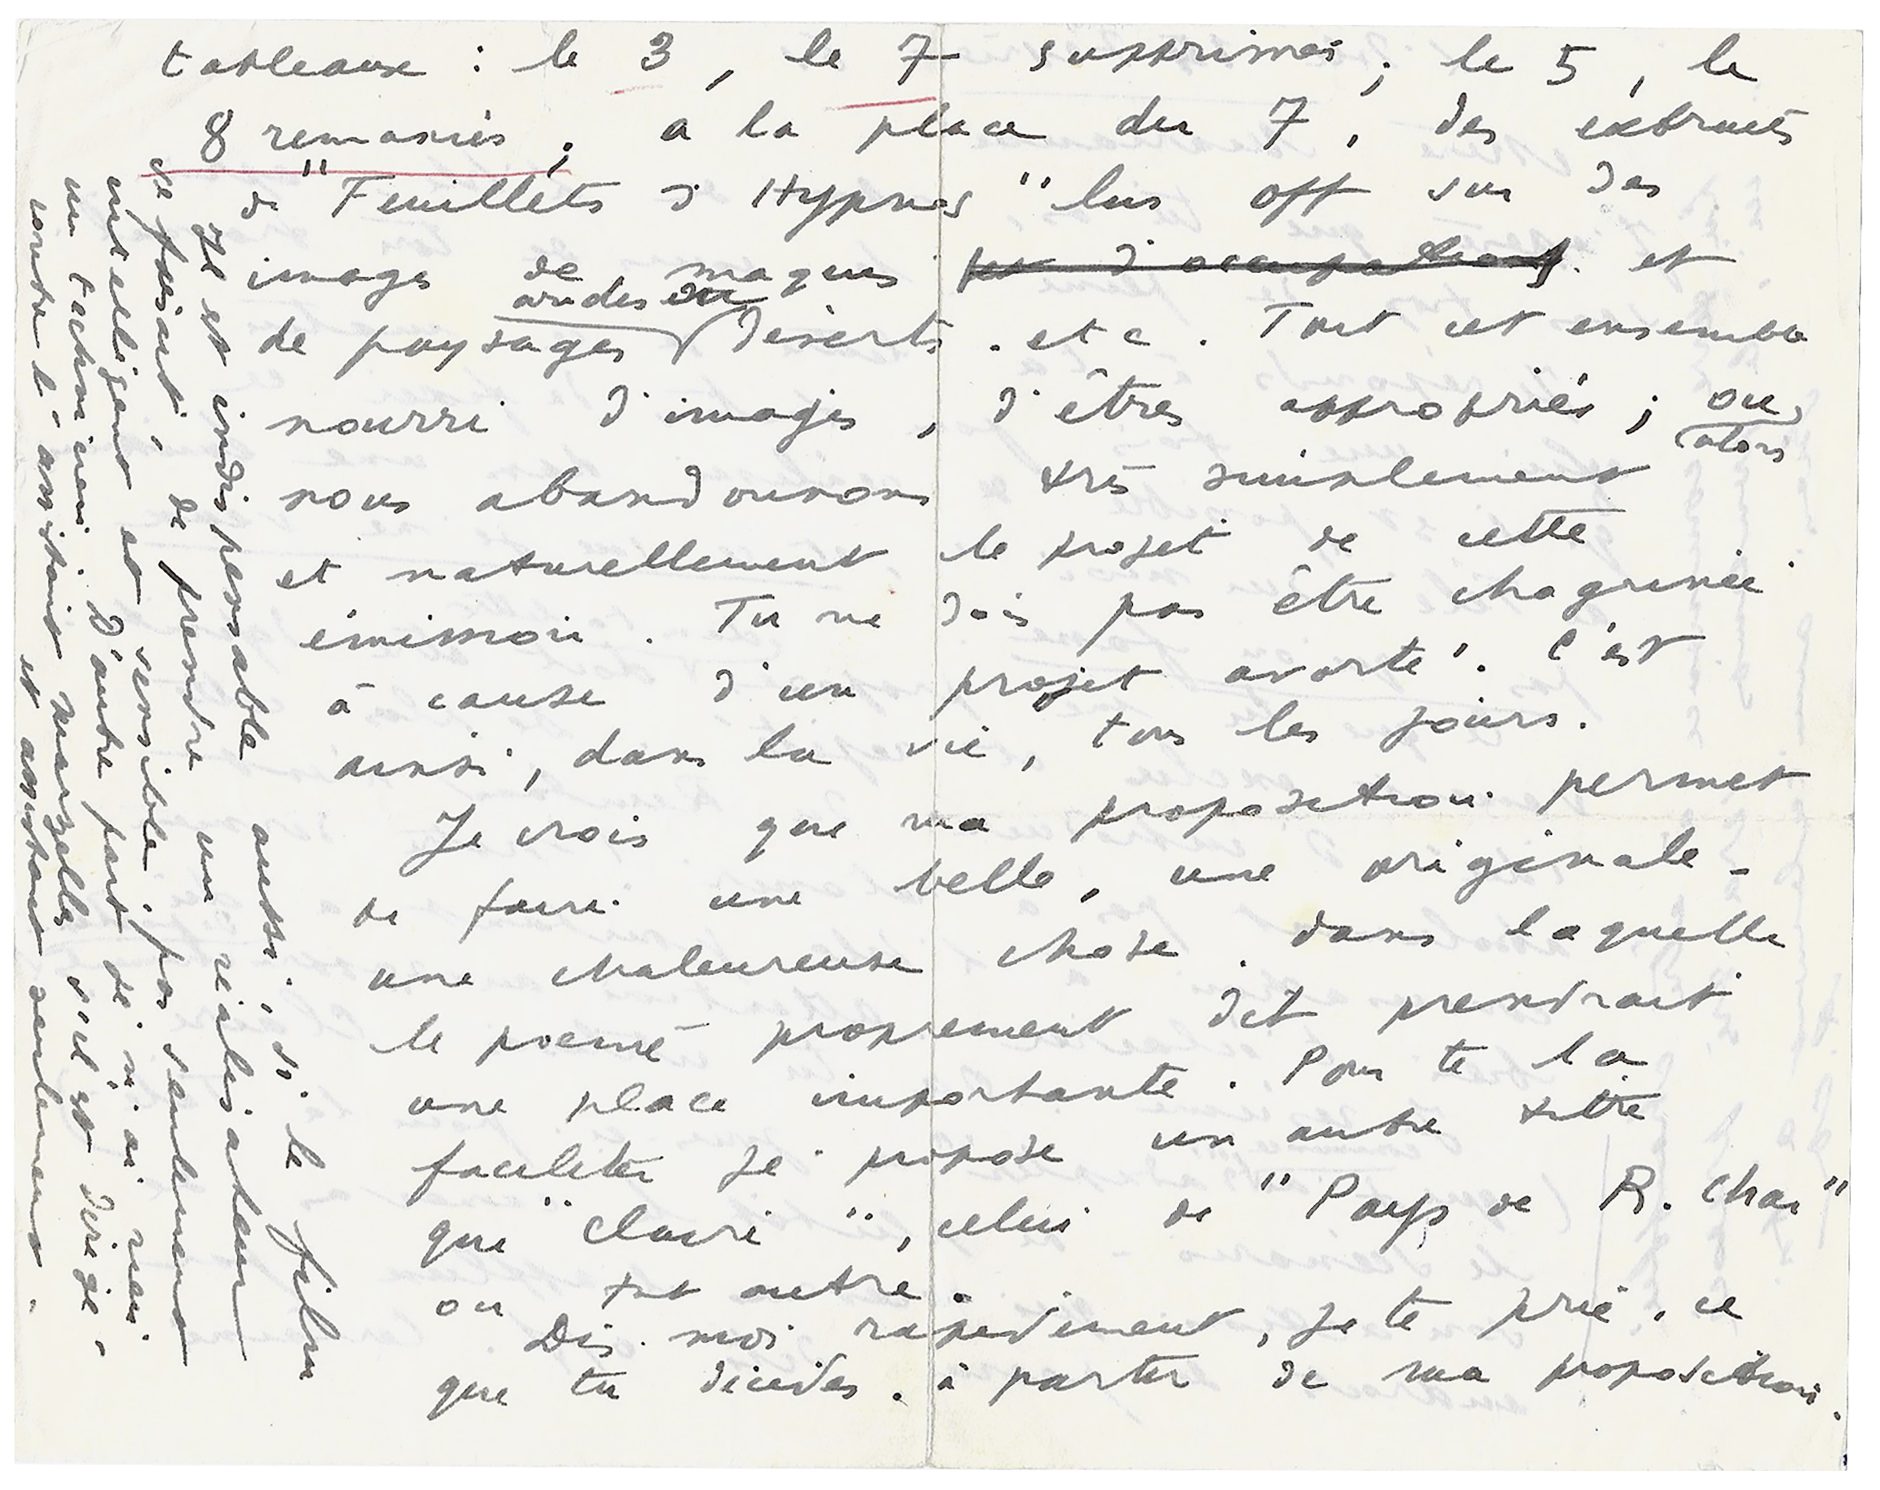 tableaux : le 3, le 7 supprimés ; le 5, le
8 remaniés ; à la place du 7, des extraits
de "Feuillets d'Hypnos" lus off sur des
images de maquis et
arides ou
de paysages déserts. etc. Tout cet ensemble
nourri d'images, d'êtres appropriés ; ou
alors
nous abandonnons très simplement
et naturellement le projet de cette
émission. Tu ne dois pas être chagrinée
à cause d'un projet avorté. C'est
ainsi, dans la vie, tous les jours.
Je crois que ma proposition permet
de faire une belle, une originale -
une chaleureuse chose dans laquelle
le poème proprement dit prendrait
une place importante. Pour te la
faciliter je propose un autre titre
que "Claire", celui de "Pays de R. Char"
ou tout autre.
Dis-moi rapidement, je te prie, ce
que tu décides, à partir de ma proposition.
Il est indispensable aussi, si le film
se faisait, de prendre un réalisateur
intelligent et sensible pas seulement
un technicien. D'autre part je n'ai rien
contre l'assistant s'il est dirigé,
et assistant seulement.